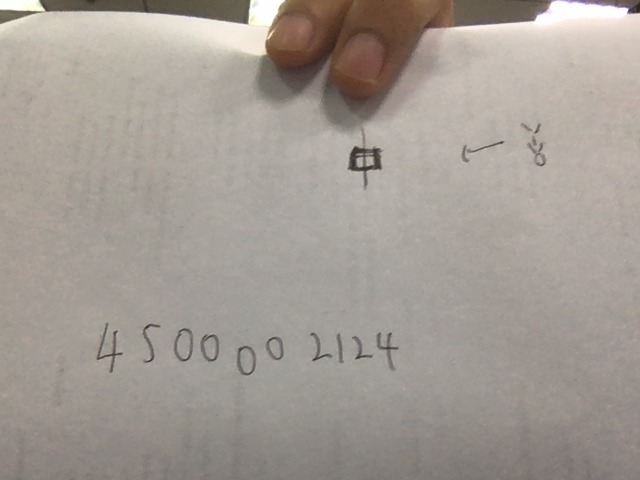 中
4500002124